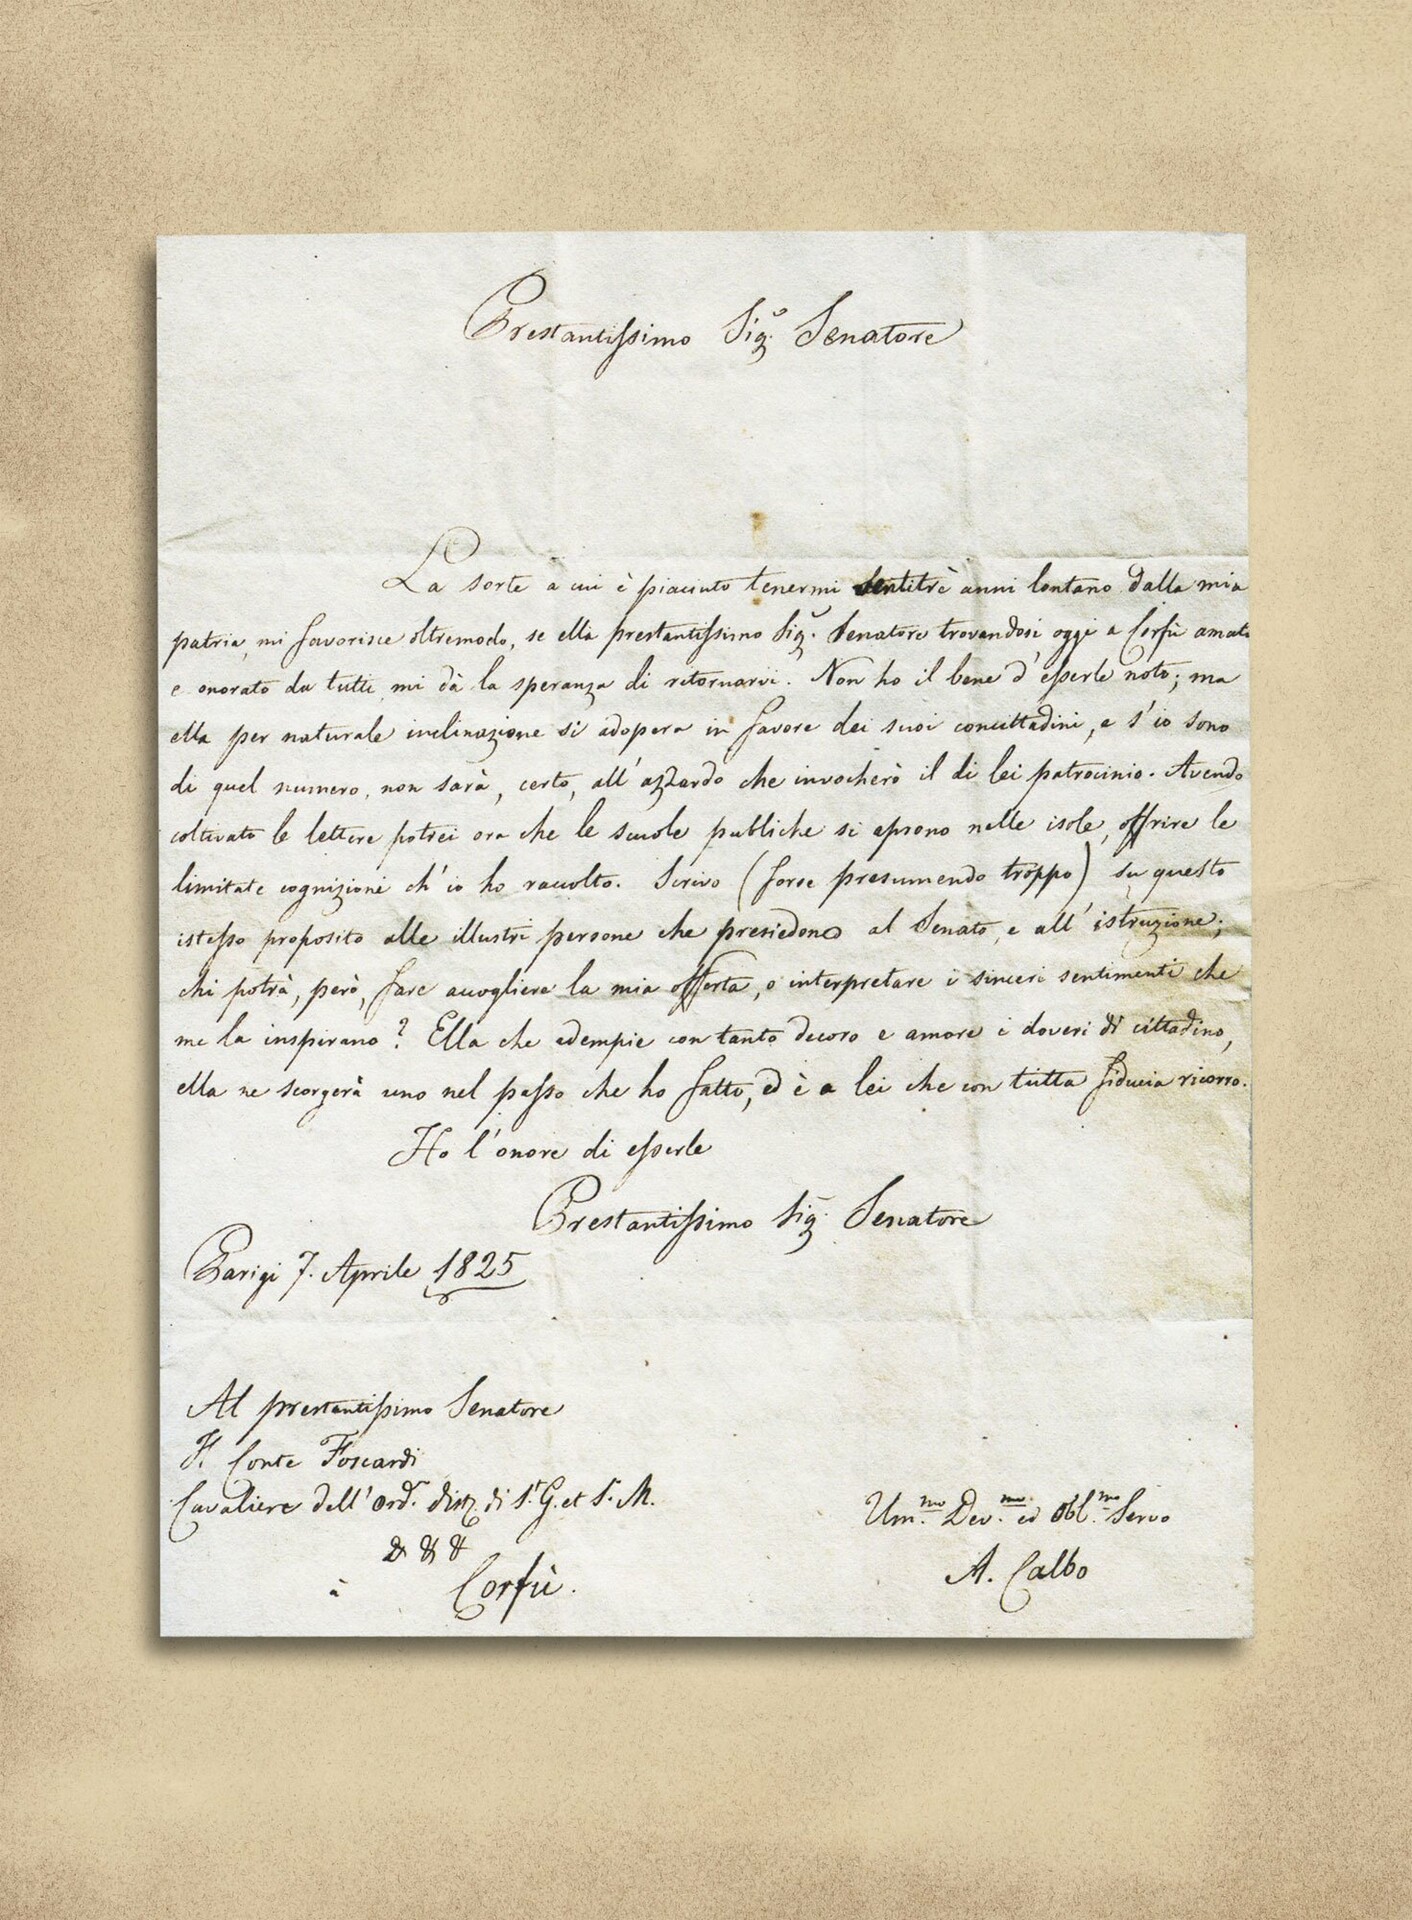 Prestantissimo Sig.r Senatore
La sorte a cui è piaciuto tenermi ventitrè anni lontano dalla mia
patria, mi favorisce oltremodo, se ella prestantissimo Sig.r Senatore trovandosi oggi a Corfù amato
e onorato da tutti, mi dà la speranza di ritornarvi. Non ho il bene d'esserle noto; ma
ella per naturale inclinazione si adopera in favore dei suoi concittadini, e s'io sono
di quel numero, non sarà, certo, all'azzardo che invocherò il di lei patrocinio. Avendo
coltivato le lettere potrei ora che le scuole publiche si aprono nelle isole, offrire le
limitate cognizioni ch'io ho raccolto. Scrivo (forse presumendo troppo) su questo
istesso proposito alle illustri persone che presiedono al Senato, e all'istruzione;
chi potrà, però, fare accogliere la mia offerta, o interpretare i sinceri sentimenti che
me la inspirano? Ella che adempie con tanto decoro e amore i doveri di cittadino,
ella ne scorgerà uno nel passo che ho fatto, ed è a lei che con tutta fiducia ricorro.
Ho l'onore di esserle
Prestantissimo Sig.r Senatore
Parigi 7. Aprile 1825
Al prestantissimo Senatore
F. Conte Foscardi
Cavaliere dell'ord.e dist. di S.t G. et S. M.
& & &
à Corfù.
Um.mo Dev.mo ed obl.mo Servo
A. Calbo